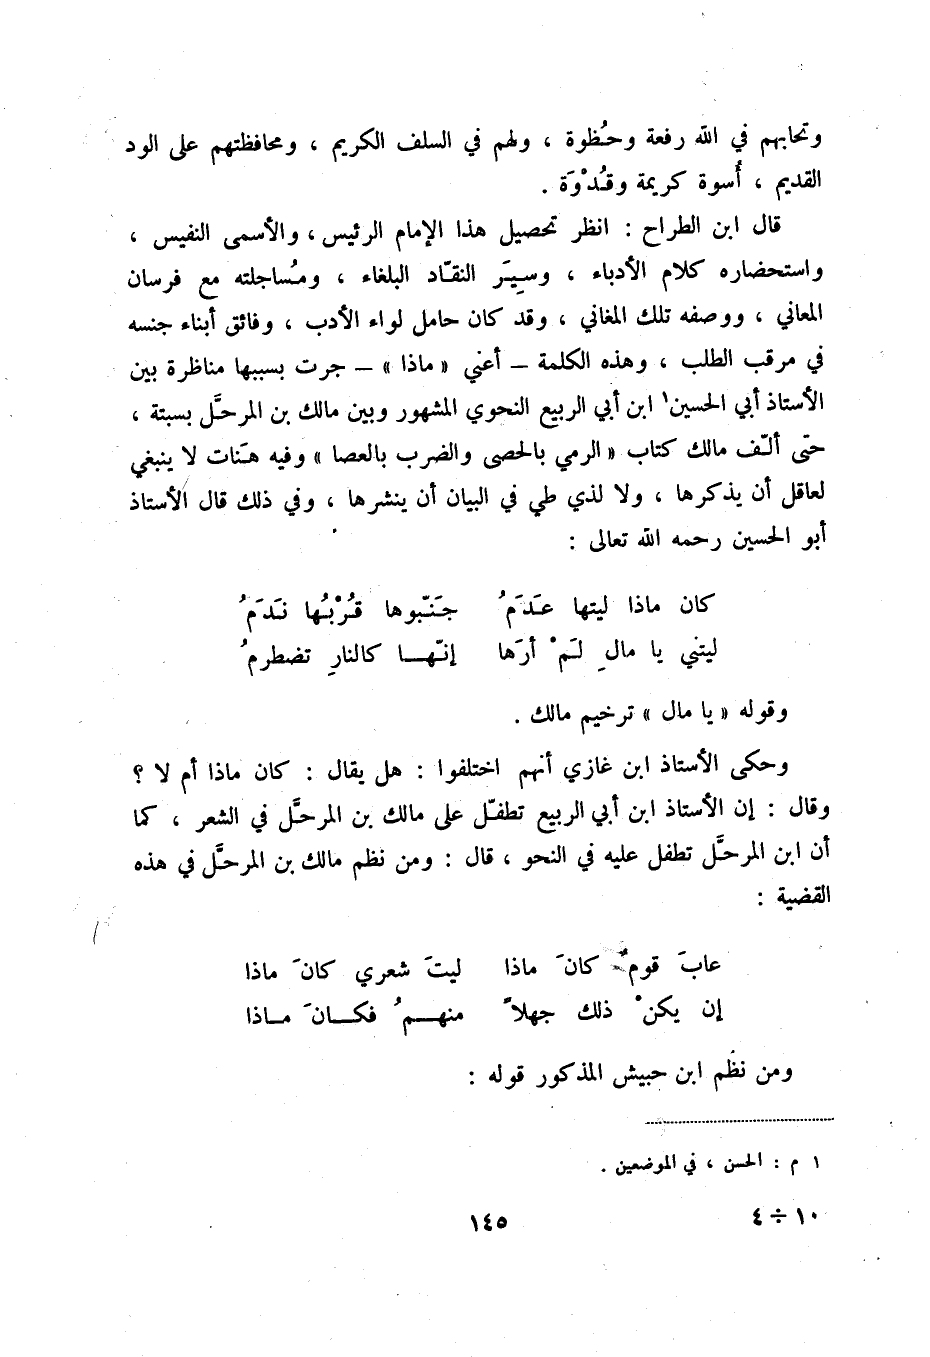 وتحابهم في الله رفعة وحُظوة ، ولهم في السلف الكريم ، ومحافظتهم على الود
القديم ، أُسوة كريمة وقُدْوَة .
قال ابن الطراح : انظر تحصيل هذا الإمام الرئيس ، والأسمى النفيس ،
واستحضاره كلام الأدباء ، وسِيَر النقّاد البلغاء ، ومُساجلته مع فرسان
المعاني ، ووصفه تلك المغاني ، وقد كان حامل لواء الأدب ، وفائق أبناء جنسه
في مرقب الطلب ، وهذه الكلمة – أعني « ماذا » – جرت بسببها مناظرة بين
الأستاذ أبي الحسين١ ابن أبي الربيع النحوي المشهور وبين مالك بن المرحَّل بسبتة ،
حتى ألّف مالك كتاب « الرمي بالحصى والضرب بالعصا » وفيه هَنات لا ينبغي
لعاقل أن يذكرها ، ولا لذي طي في البيان أن ينشرها ، وفي ذلك قال الأستاذ
أبو الحسين رحمه الله تعالى :
كان ماذا ليتها عَدَمُ    جَنّبوها قُرْبُها نَدَمُ
ليتني يا مالِ لَمْ أرَها    إنّها كالنارِ تضطرمُ
وقوله « يا مال » ترخيم مالك .
وحكى الأستاذ ابن غازي أنهم اختلفوا : هل يقال : كان ماذا أم لا ؟
وقال : إن الأستاذ ابن أبي الربيع تطفّل على مالك بن المرحَّل في الشعر ، كما
أن ابن المرحَّل تطفل عليه في النحو ، قال : ومن نظم مالك بن المرحَّل في هذه
القضية :
عابَ قومٌ كانَ ماذا    ليتَ شعري كانَ ماذا
إن يكنْ ذلك جهلاً    منهمُ فكانَ ماذا
ومن نظم ابن حبيش المذكور قوله :
١ م : الحسن ، في الموضعين .
١٠ ÷ ٤
١٤٥